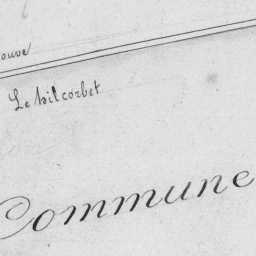 ouve
Le hilcorbet
Commune